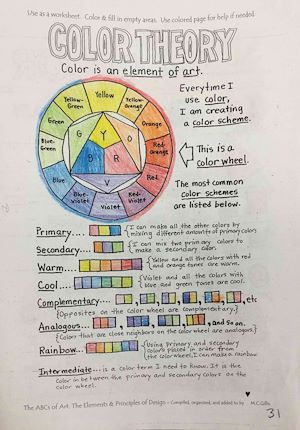 Use as a worksheet. Color & fill in empty areas. Use colored page for help if needed.
COLOR THEORY
Color is an element of art.
Everytime I
use color,
I am creating
a color scheme.
Yellow
Yellow-Green
Yellow-Orange
Green
Orange
Blue-Green
Red-Orange
Blue
Red
Blue-Violet
Red-Violet
Violet
Y
G
O
B
R
V
This is a
color wheel.
The most common
color schemes
are listed below.
Primary.... {I can make all the other colors by
mixing different amounts of primary colors.
Secondary.... {I can mix two primary colors to
make a secondary color.
Warm.... {Yellow and all the colors with red
and orange tones are warm.
Cool.... {Violet and all the colors with
blue and green tones are cool.
Complementary.... , , , , etc
{Opposites on the color wheel are complementary.}
Analogous... , , and so on.
{Colors that are close neighbors on the color wheel are analogous.}
Rainbow... {Using primary and secondary
colors placed in order from
the color wheel, I can make a rainbow
Intermediate...is a color term I need to know. It is the
color in between the primary and secondary colors on the
color wheel.
The ABCs of Art. The Elements & Principles of Design - Compiled, organized, and added to by M.C.Gillis
31